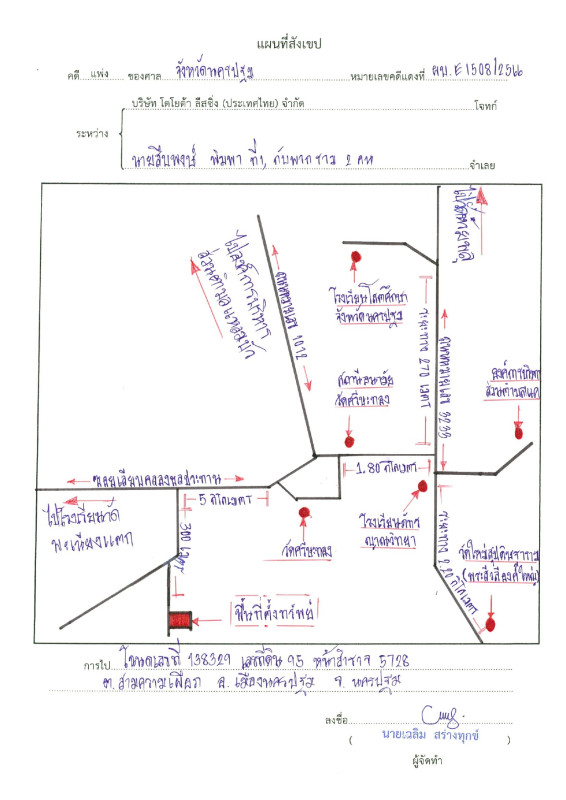 แผนที่สังเขป
คดี แพ่ง ของศาล จังหวัดนครปฐม หมายเลขคดีแดงที่ ผบ.E1508/2566
บริษัท โตโยต้า ลีสซิ่ง (ประเทศไทย) จำกัด โจทก์
ระหว่าง
นายสืบพงษ์ พิมพา ที่1, กับพวกรวม 2 คน จำเลย
ไปองค์การบริหาร
ส่วนตำบล
ถนนหมายเลข 1012
โรงเรียนโสตศึกษา
จังหวัดนครปฐม
ระยะทาง 270 เมตร
ถนนหมายเลข 3233
สถานีอนามัย
วัดศรีษะทอง
องค์การบริหาร
ส่วนตำบล
1.80 กิโลเมตร
ถนนเลียบคลองชลประทาน
5 กิโลเมตร
ไปโรงเรียนวัด
พะเนียงแตก
300 เมตร
วัดศรีษะทอง
โรงเรียน
วิทยา
ระยะทาง กิโลเมตร
วัดใหม่สุปดิษฐาราม
พื้นที่ตั้งทรัพย์
การไป โฉนดเลขที่ 138329 เลขที่ดิน 95 หน้าสำรวจ 5728
ต.สามควายเผือก อ.เมืองนครปฐม จ.นครปฐม
ลงชื่อ
( นายเฉลิม สร่างทุกข์ )
ผู้จัดทำ